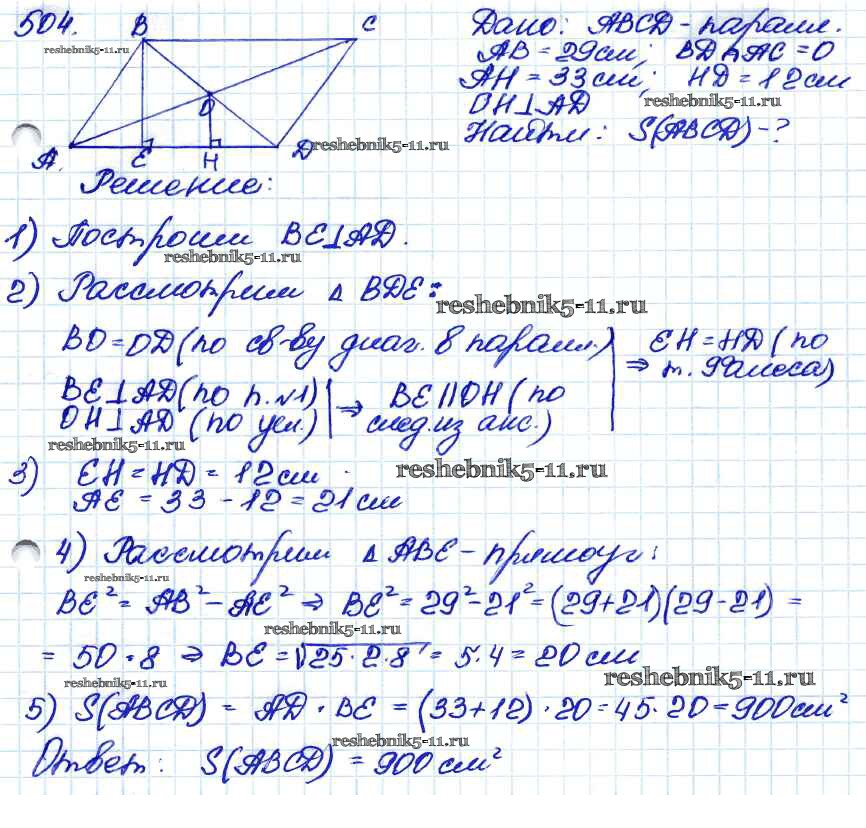 504.
reshebnik5-11.ru
B
C
O
A.
E
H
D
reshebnik5-11.ru
Дано: ABCD - паралл.
AB = 29 см; BD ∩ AC = O
AH = 33 см; HD = 12 см
OH ⊥ AD
reshebnik5-11.ru
Найти: S(ABCD) - ?
Решение:
1) Построим BE ⊥ AD.
reshebnik5-11.ru
2) Рассмотрим Δ BDE:
reshebnik5-11.ru
BO = OD (по св-ву диаг. в паралл.)
BE ⊥ AD (по п. №1)
OH ⊥ AD (по усл.)
⇒ BE || OH (по
след. из акс.)
⇒ EH = HD (по
т. Фалеса)
reshebnik5-11.ru
3) EH = HD = 12 см
AE = 33 - 12 = 21 см
reshebnik5-11.ru
4) Рассмотрим Δ ABE - прямоуг:
reshebnik5-11.ru
BE² = AB² - AE² ⇒ BE² = 29² - 21² = (29+21)(29-21) =
reshebnik5-11.ru
= 50 · 8 ⇒ BE = √25·2·8 = 5·4 = 20 см
reshebnik5-11.ru
reshebnik5-11.ru
5) S(ABCD) = AD · BE = (33+12) · 20 = 45 · 20 = 900 см²
reshebnik5-11.ru
Ответ: S(ABCD) = 900 см²